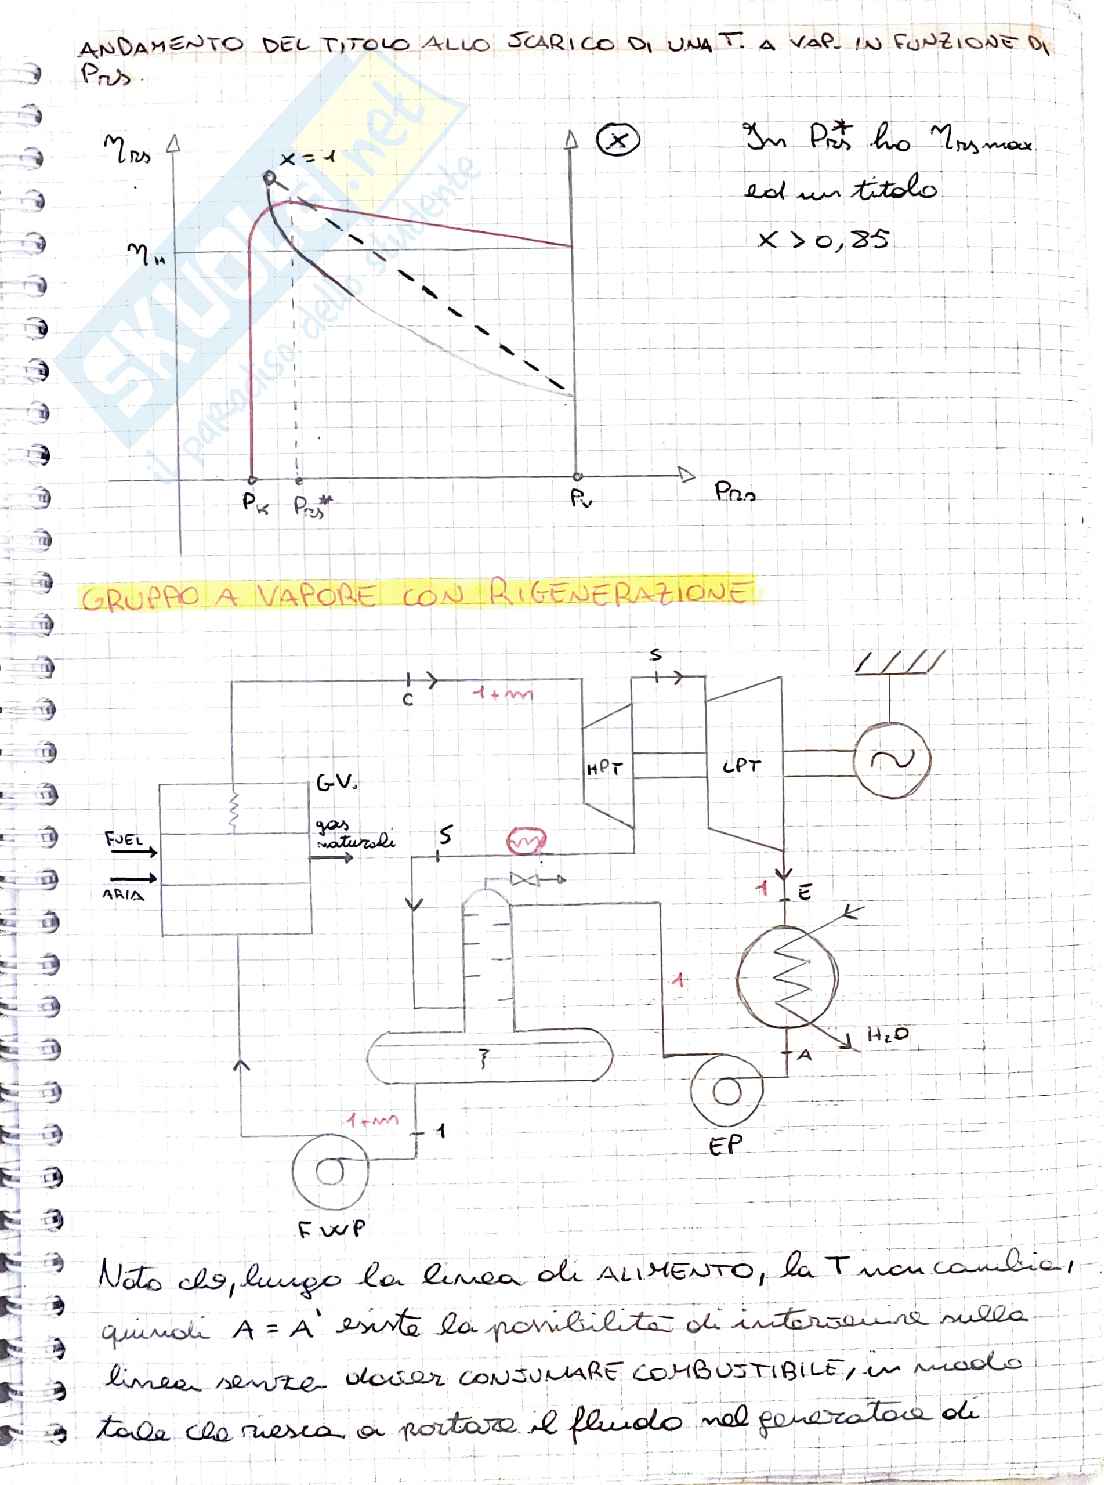 ANDAMENTO DEL TITOLO ALLO SCARICO DI UNA T. A VAP. IN FUNZIONE DI
PRS.
ηRS
x = 1
X
In PRS* ho ηRSmax
ed un titolo
x > 0,85
ηH
PK
PRS*
PV
PRS
SKUOLA.net
il paradiso dello studente
GRUPPO A VAPORE CON RIGENERAZIONE
S
C
1+m
HPT
LPT
G.V.
FUEL
gas
naturali
ARIA
S
m
1
E
1
H2O
A
1+m
1
EP
FWP
Noto che, lungo la linea di ALIMENTO, la T non cambia,
quindi A = A' esiste la possibilità di intervenire sulla
linea senza dover CONSUMARE COMBUSTIBILE, in modo
tale che riesca a portare il fluido nel generatore di